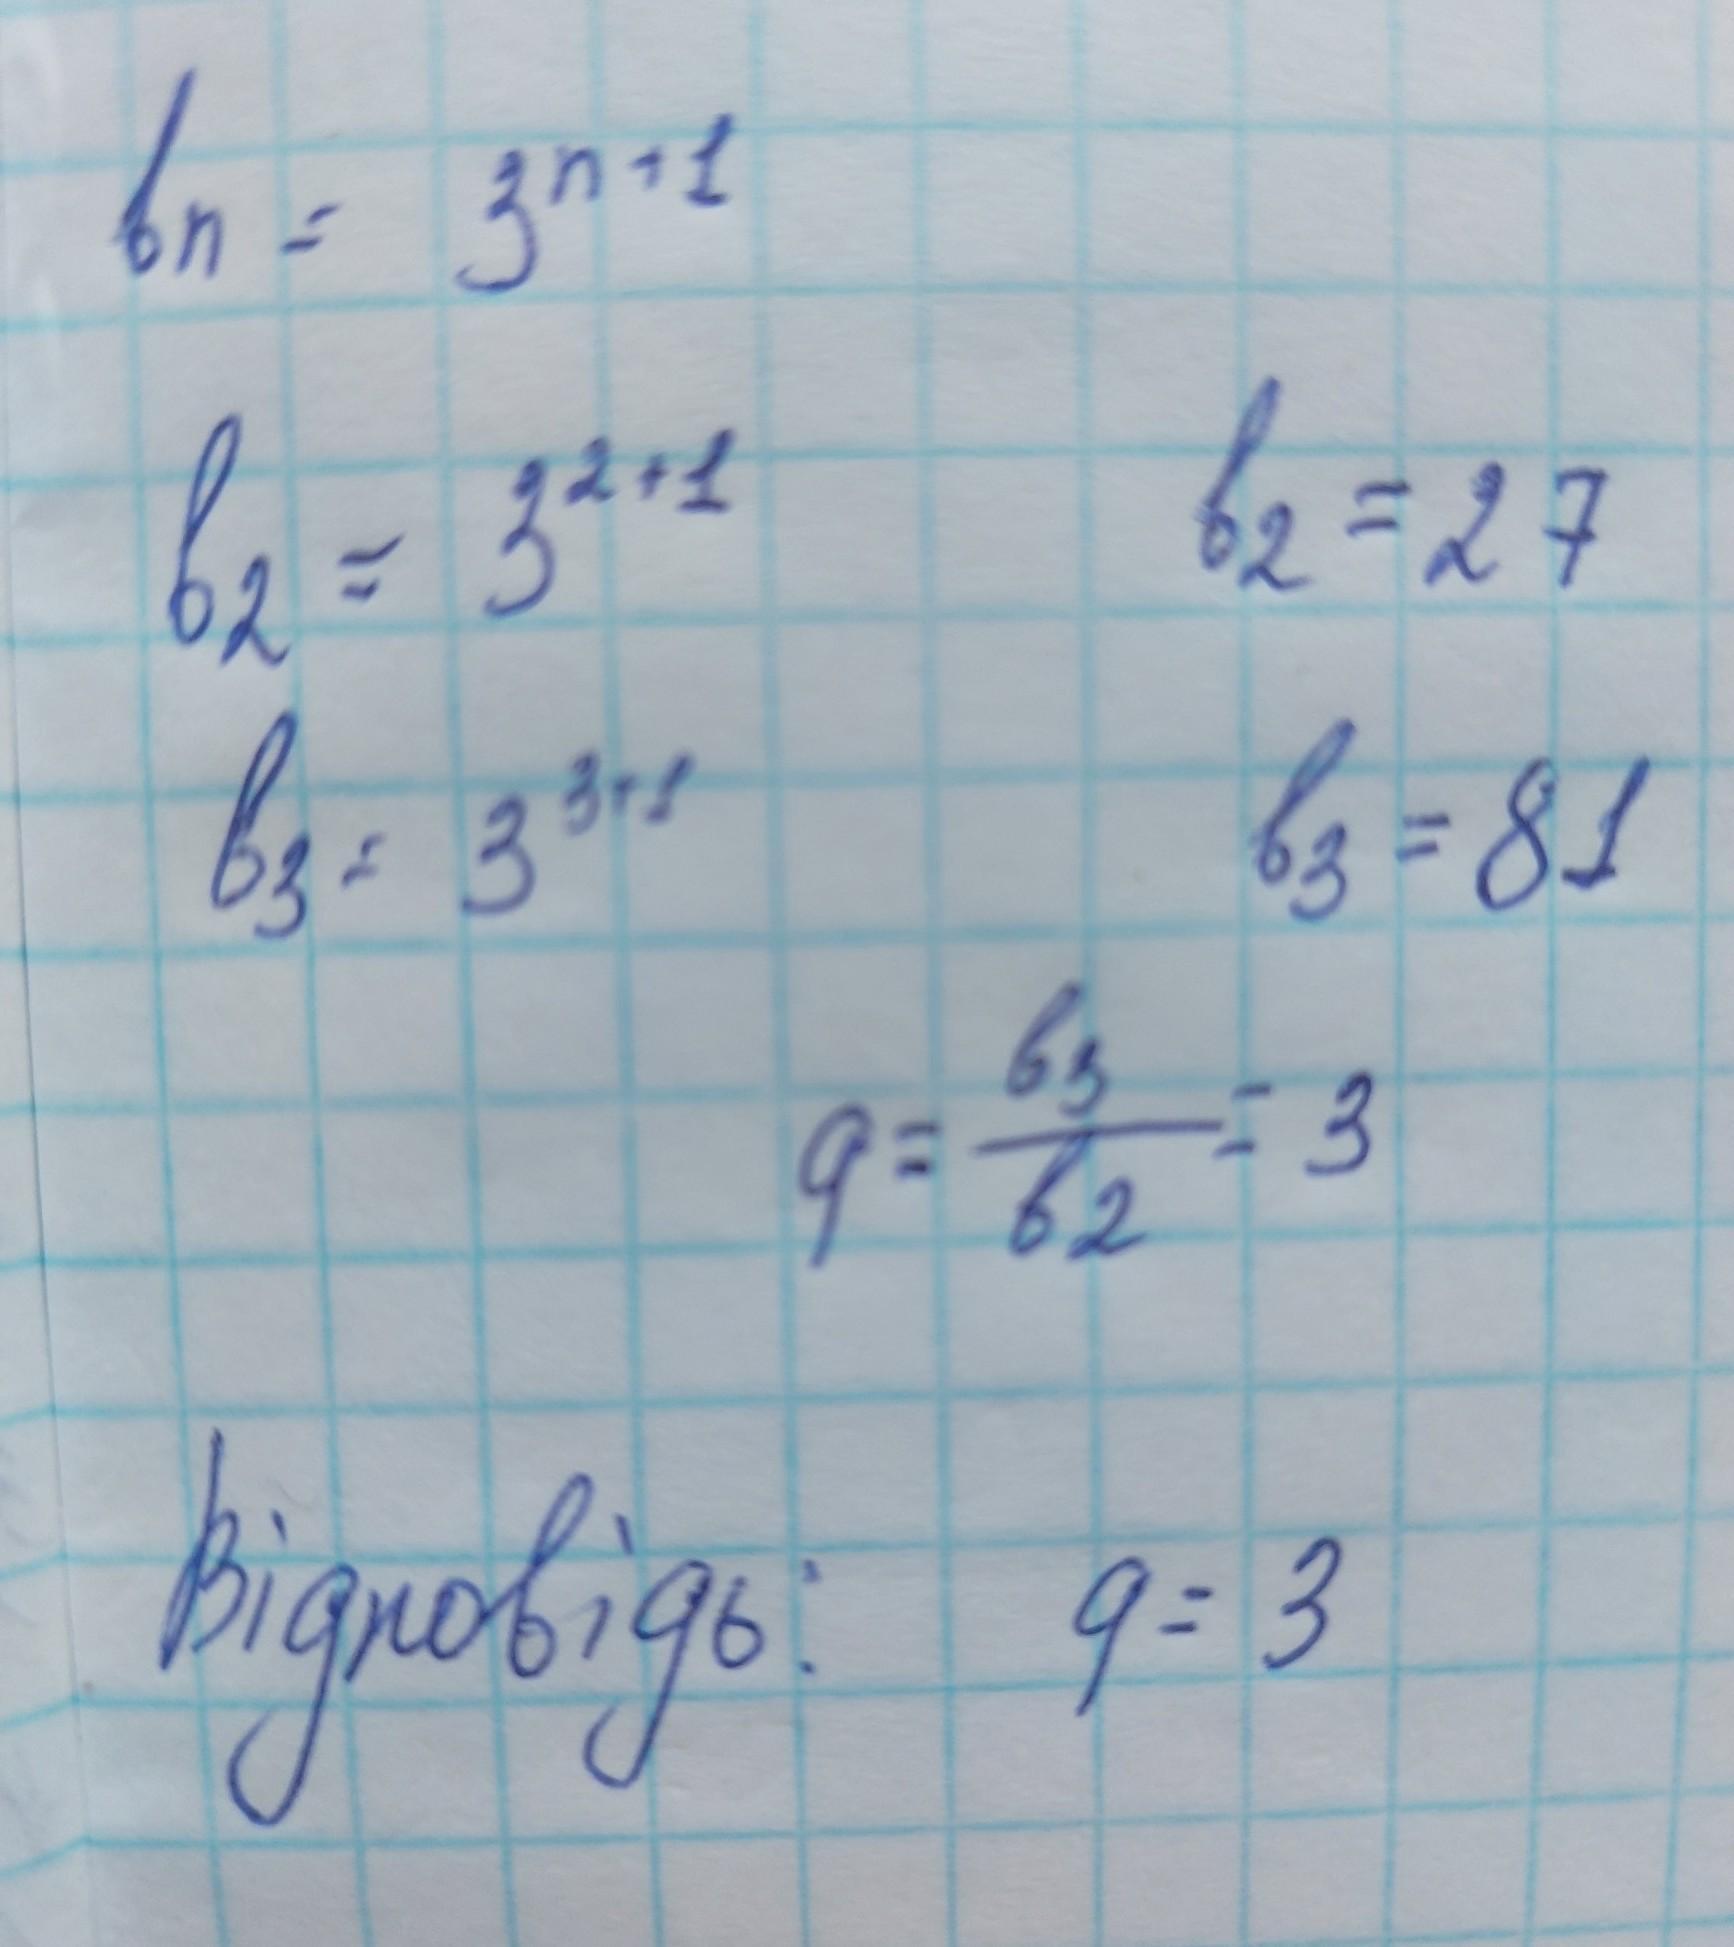 bn = 3^{n+1}
b_2 = 3^{2+1} b_2 = 27
b_3 = 3^{3+1} b_3 = 81
q = \frac{b_3}{b_2} = 3
Відповідь: q = 3